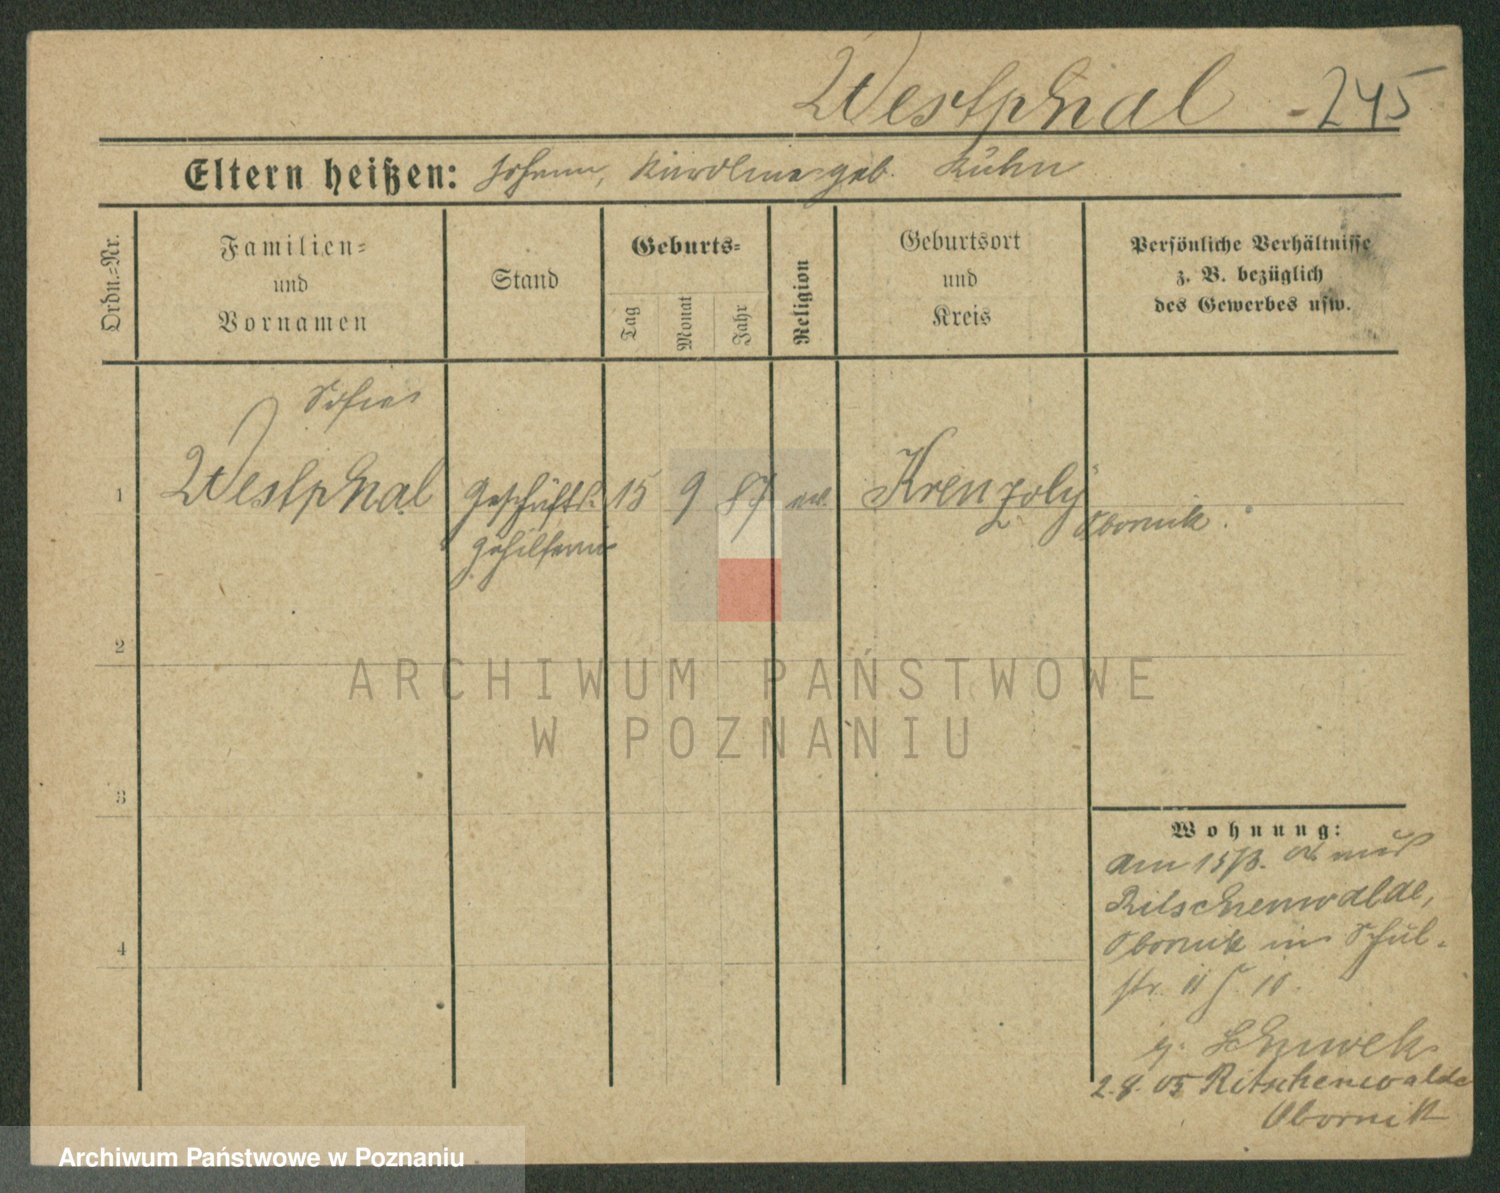 Westphal - 245
Eltern heißen: Johann, Karoline geb. Kuhn
Ordn.=Nr.
Familien=
und
Vornamen
Stand
Geburts=
Tag
Monat
Jahr
Religion
Geburtsort
und
Kreis
Persönliche Verhältnisse
z. B. bezüglich
des Gewerbes usw.
Sofie
1 Westphal Geschäfts- 15 9 87 ev.
gehilferin
Obornik.
2
3
4
Wohnung:
Am 15/3. 05 aus
Ritschenwalde,
Obornik in Schul-
str. 11
b.
2.8.05 Ritschenwalde
Obornik
ARCHIWUM PAŃSTWOWE
W POZNANIU
Archiwum Państwowe w Poznaniu